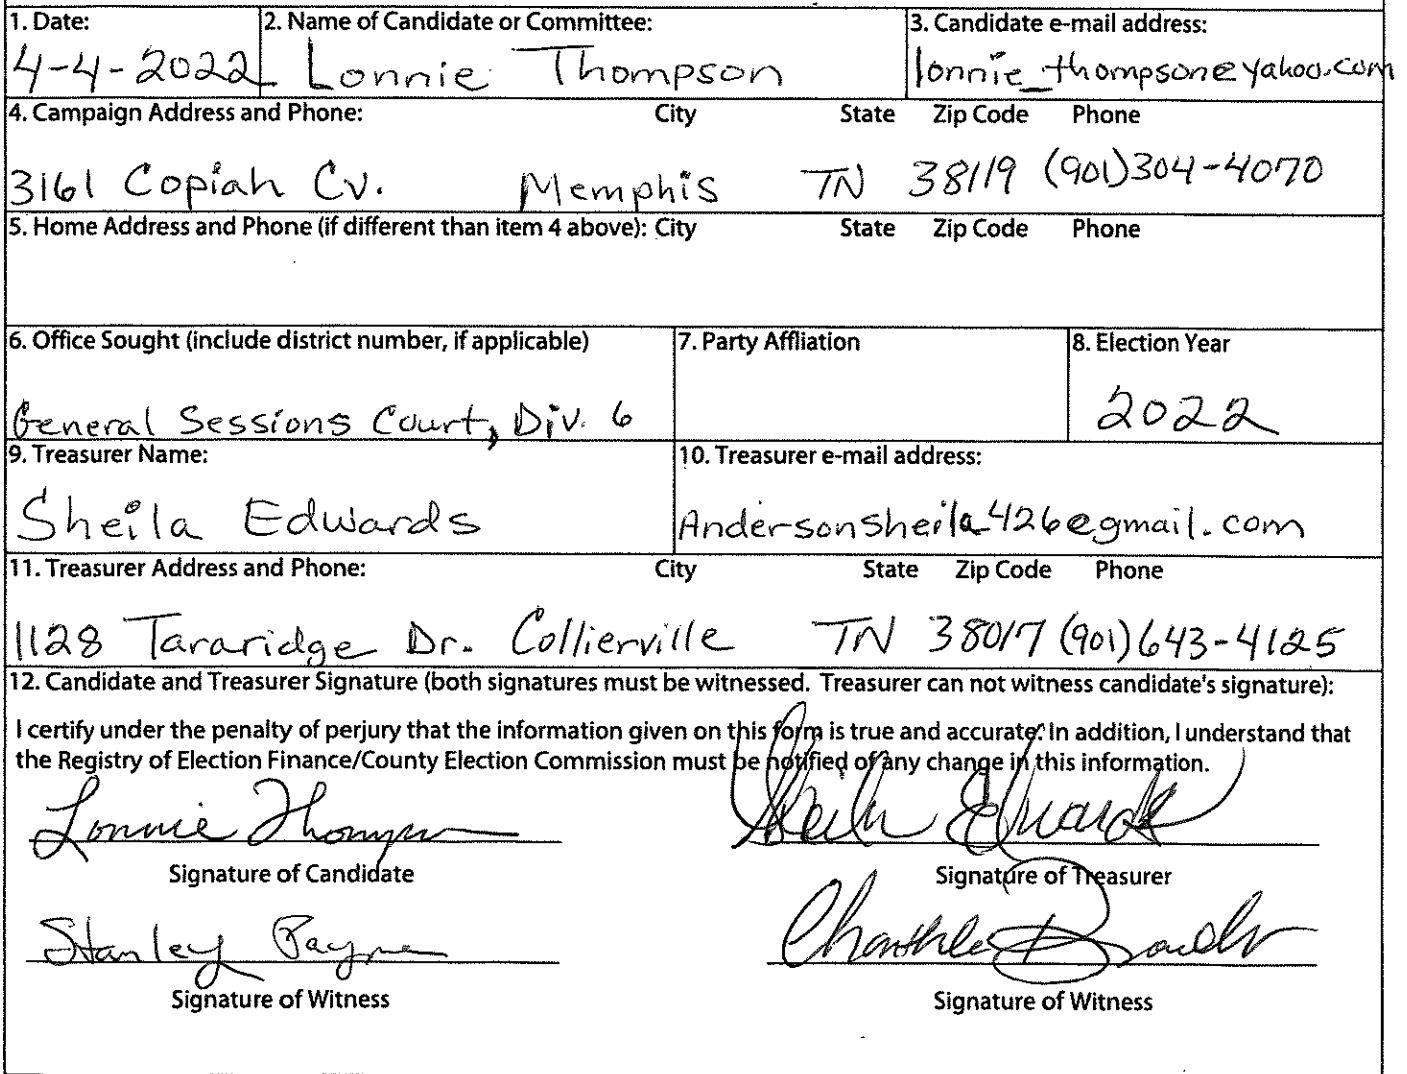 1. Date: 2. Name of Candidate or Committee: 3. Candidate e-mail address:
4-4-2022 Lonnie Thompson lonnie_thompson@yahoo.com
4. Campaign Address and Phone: City State Zip Code Phone
3161 Copiah Cv. Memphis TN 38119 (901)304-4070
5. Home Address and Phone (if different than item 4 above): City State Zip Code Phone
6. Office Sought (include district number, if applicable) 7. Party Affliation 8. Election Year
General Sessions Court, Div. 6 2022
9. Treasurer Name: 10. Treasurer e-mail address:
Sheila Edwards Andersonsheila426@gmail.com
11. Treasurer Address and Phone: City State Zip Code Phone
1128 Tararidge Dr. Collierville TN 38017 (901)643-4125
12. Candidate and Treasurer Signature (both signatures must be witnessed. Treasurer can not witness candidate's signature):
I certify under the penalty of perjury that the information given on this form is true and accurate. In addition, I understand that
the Registry of Election Finance/County Election Commission must be notified of any change in this information.
Lonnie Thompson Sheila Edwards
Signature of Candidate Signature of Treasurer
Stanley Payne
Signature of Witness Signature of Witness